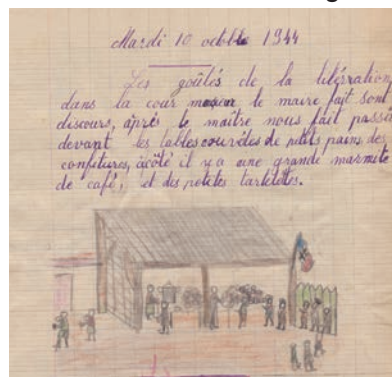 Mardi 10 octobre 1944
Les goûtés de la libération
dans la cour le maire fait sont
discours, après le maître nous fait passé
devant les tables couvèdes de petits pains des
confitures, acôté il y a une grande marmite
de café, et des petites tartelettes.